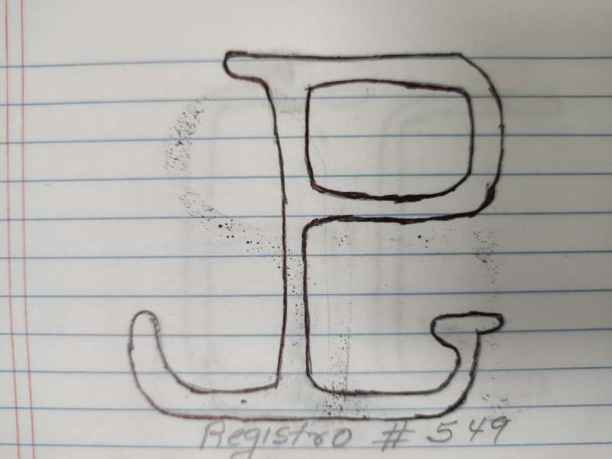 Registro # 549